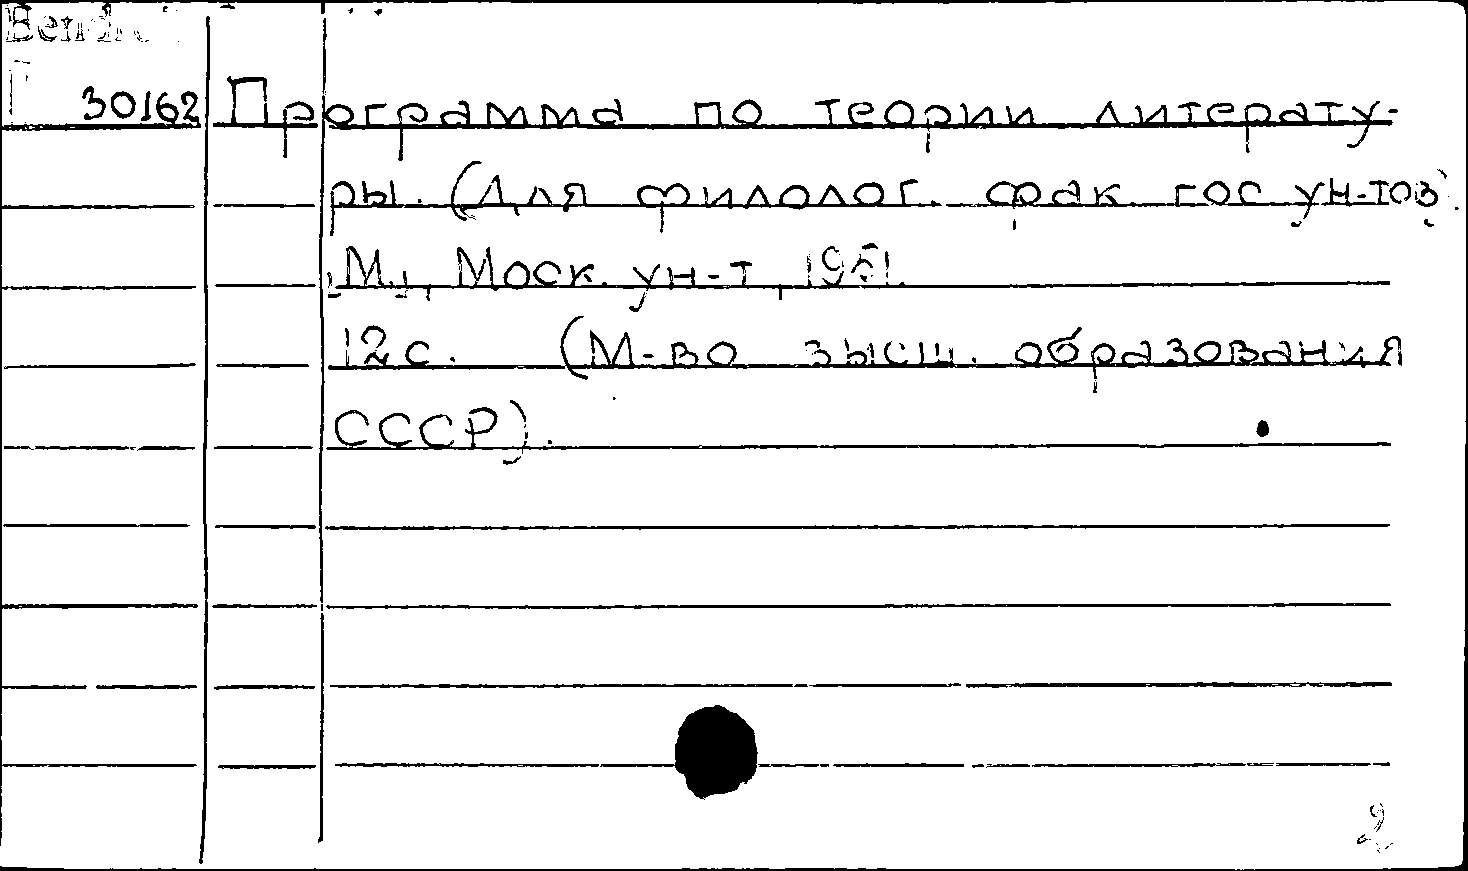 30162 Программа по теории литерату-
ры. (Для филолог. фак. гос ун-тов).
[М.], Моск. ун-т, 1951.
12 с. (М-во высш. образования
СССР).
2